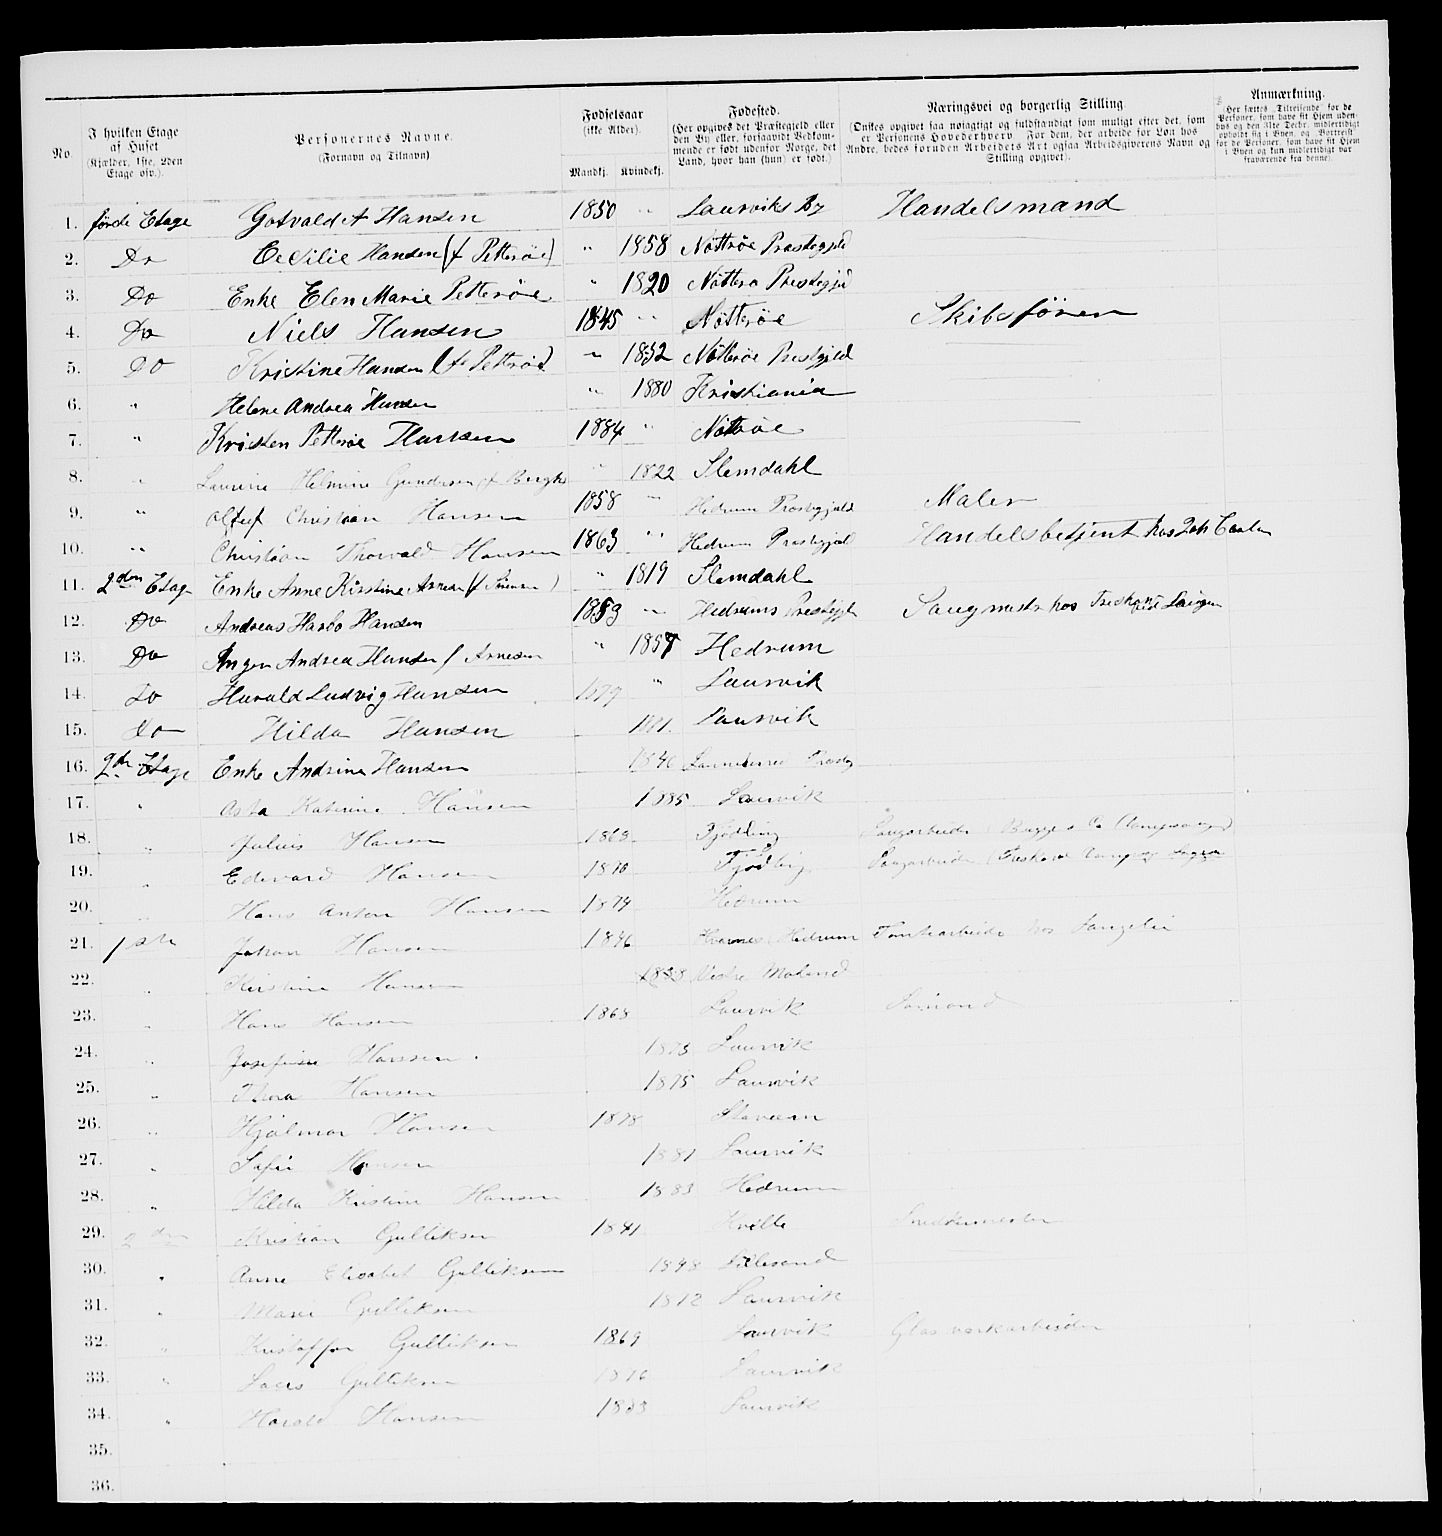 No. I hvilken Etage af Huset (Kjælder, 1ste, 2den Etage osv.). Personernes Navne. (Fornavn og Tilnavn) Fødselsaar (ikke Alder). Mandkj. Kvindekj. Fødested. (Her opgives det Præstegjeld eller den By eller, forsaavidt Vedkommende er født udenfor Norge, det Land, hvor han (hun) er født.) Næringsvei og borgerlig Stilling (Ønskes opgivet saa nøiagtigt og fuldstændigt som muligt efter det, som er Personens Hovederhverv. For dem, der arbeide for Løn hos Andre, bedes foruden Arbeidets Art ogsaa Arbeidsgiverens Navn og Stilling opgivet). Anmærkning. (Her sættes „Tilreisende" for de Personer, som have sit Hjem udenbys og den 31te Decbr. midlertidigt opholdt sig i Byen, og „Bortreist" for de Personer, som have sit Hjem i Byen og kun midlertidigt var fraværende fra denne).
1. førde Etage Gotvald A Hansen 1850 " Laurviks By Handelsmand
2. Do Cecilie Hansen (f Petterøe) " 1858 Nøtterøe Præstegjeld
3. Do Enke Elen Marie Petterøe " 1820 Nøtterø Prestegjd
4. Do Niels Hansen 1845 " Nøtterøe Skibsfører
5. Do Kristine Hansen (f Petterøe) " 1852 Nøtterøe Prestgjeld
6. " Helene Andrea Hansen " 1880 Kristiania
7. " Kristen Petterøe Hansen 1884 " Nøtterøe
8. " Laurine Helmine Gundersen " 1822 Slemdahl
9. " Oluf Christian Hansen 1858 " Hedrum Præstegjeld Maler
10. " Christian Thorvald Hansen 1863 " Hedrum Prestegjæld Handelsbetjent hos
11. 2den Etag Enke Anne Kirstine " 1819 Slemdahl
12. Do Andreas Harbo Hansen 1853 " Hedrums Prestegjel Saugmester hos Treskow
13. Do Inger Andrea Hansen f Arnesen " 1857 Hedrum
14. Do Harald Ludvig Hansen 1879 " Laurvik
15. Do Hilda Hansen 1881. Laurvik
16. 2de Etage Enke Andrine Hansen 1846
17. " Asta Katrine Hansen 1885 Laurvik
18. " Julius Hansen 1868 Fjødling Saugarbeider
19. " Edevard Hansen 1870 Saugarbeider
20. " Hans Anton Hansen 1874 Hedrum
21. 1ste Johan Hansen 1846 Hvarnes Hedrum Tomtearbeider hos
22. " Kirstine Hansen 1838
23. " Hans Hansen 1868 Laurvik Sømand
24. " Josefine Hansen 1873 Laurvik
25. " Thora Hansen 1875 Laurvik
26. " Hjalmar Hansen 1878 Stavern
27. " Sofie Hansen 1881 Laurvik
28. " Hilda Kristine Hansen 1883 Hedrum
29. 2den Kristian Gulliksen 1841 Snedkermester
30. " Anne Elisabet Gulliksen 1848 Lillesand
31. " Marie Gulliksen 1872 Laurvik
32. " Kristoffer Gulliksen 1869 Laurvik Glasverkarbeider
33. " Lars Gulliksen 1876 Laurvik
34. " Harald Hansen 1883 Laurvik
35.
36.